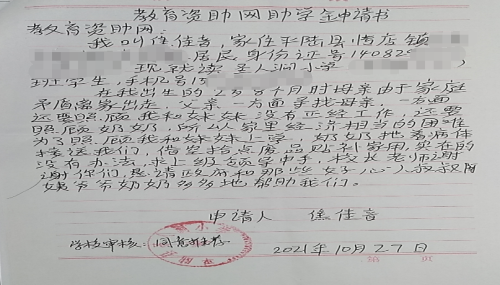 教育资助网助学金申请书
教育资助网:
我叫佳音,家住平陆县
居民身份证号140829
现就读圣人涧小学
班学生,手机号15
在我出生的2岁8个月时母亲由于家庭
矛盾离家出走,父亲一方面寻找母亲,一方面
还要照顾我和妹妹没有正经工作,还要
照顾奶奶,所以家里经济相当的困难
为了照顾我和妹妹上学,奶奶拖着病体
接送我们,借发拾点废品贴补家用,实在的
没有办法,求上级领导申手,校长老师谢
谢你们,恳请政府和那些好心人叔叔阿
姨爷爷奶奶多多地帮助我们。
申请人 佳音
学校审核: 同意推荐 2021年10月27日